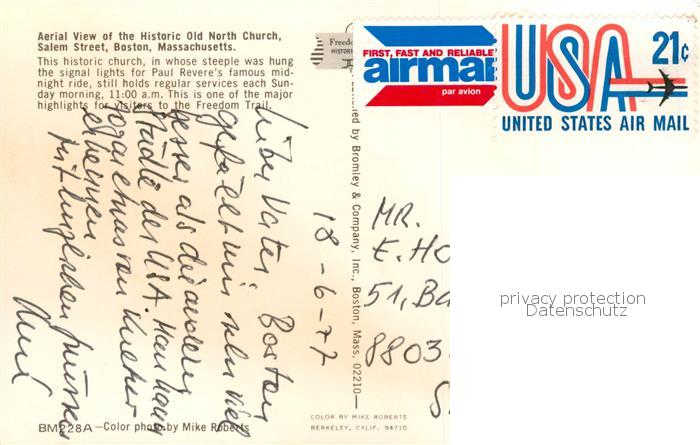 Aerial View of the Historic Old North Church,
Salem Street, Boston, Massachusetts.
This historic church, in whose steeple was hung
the signal lights for Paul Revere's famous mid-
night ride, still holds regular services each Sun-
day morning, 11:00 a.m. This is one of the major
highlights for visitors to the Freedom Trail.
Freedo
FIRST, FAST AND RELIABLE
airmai
par avion
USA 21¢
UNITED STATES AIR MAIL
by Bromley & Company, Inc., Boston, Mass. 02210—
18-6-77
Boston
gefällt mir sehr viel
besser als die andern
Städte der USA. Man kann
sogar etwas von
MR.
E. HO
51, Ba
8803
S
privacy protection
Datenschutz
BM228A—Color photo by Mike Roberts
COLOR BY MIKE ROBERTS
BERKELEY, CALIF. 94710